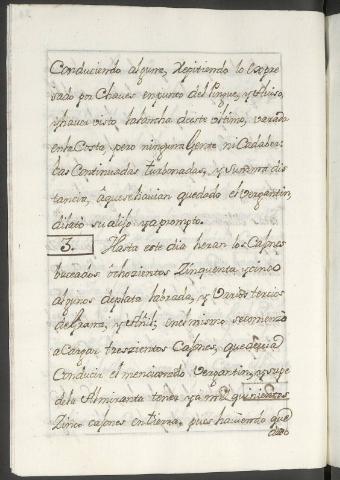 Conduciendo alguna, Repitiendo lo Expre
sado por Chaves en punto del Pingue, y Aviso,
y haver visto la lancha de este ultimo, varada
en la Costa, pero ninguna Gente ni Cadaber.
Las Continuadas turbonadas, y Suma dis
tancia, â que havian quedado el vergantin,
dilató su aliso ya prompto.
3. Hasta este dia heran los Cajones
buceados ôchozientos Zinquenta, y cinco
algunos de plata labrada, y Varios tercios
de Grana, y Añil, en el mismo se comenzó
a Cargar treszientos Cajones, que devia
Conducir el mencionado Vergantin, y supe
de la Almiranta tener ya mil quinientos
Zinco cajones en tierra, pues haviendo que
dado